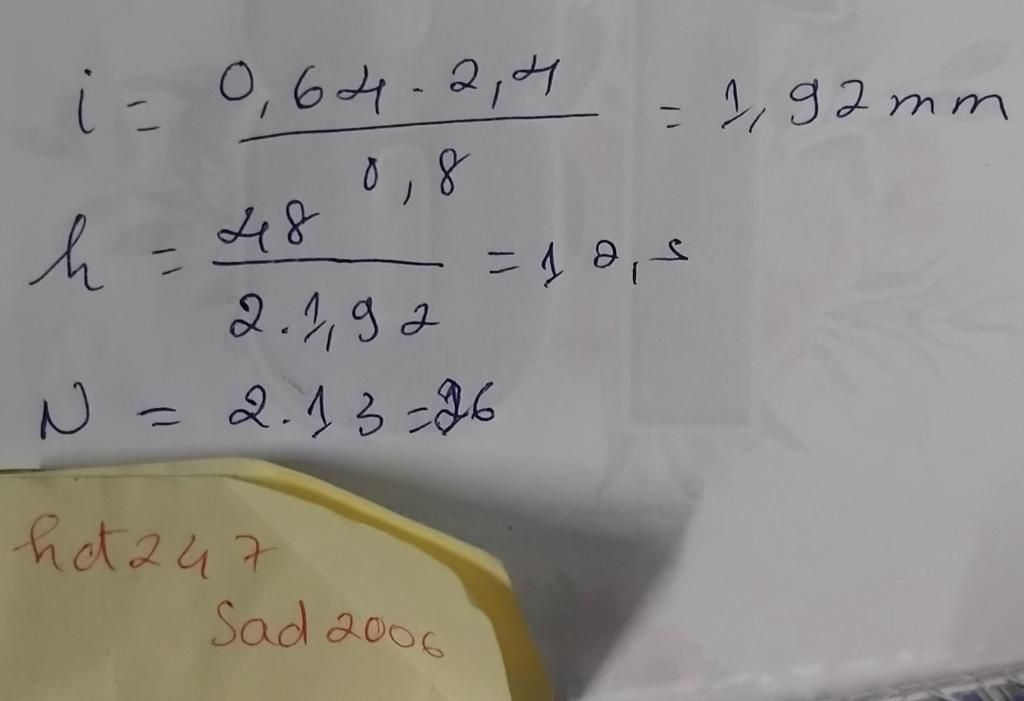 i = 0,64 . 2,4 / 0,8 = 1,92 mm
h = 48 / 2 . 1,92 = 12,5
N = 2 . 13 = 26
hdt247
Sad2006